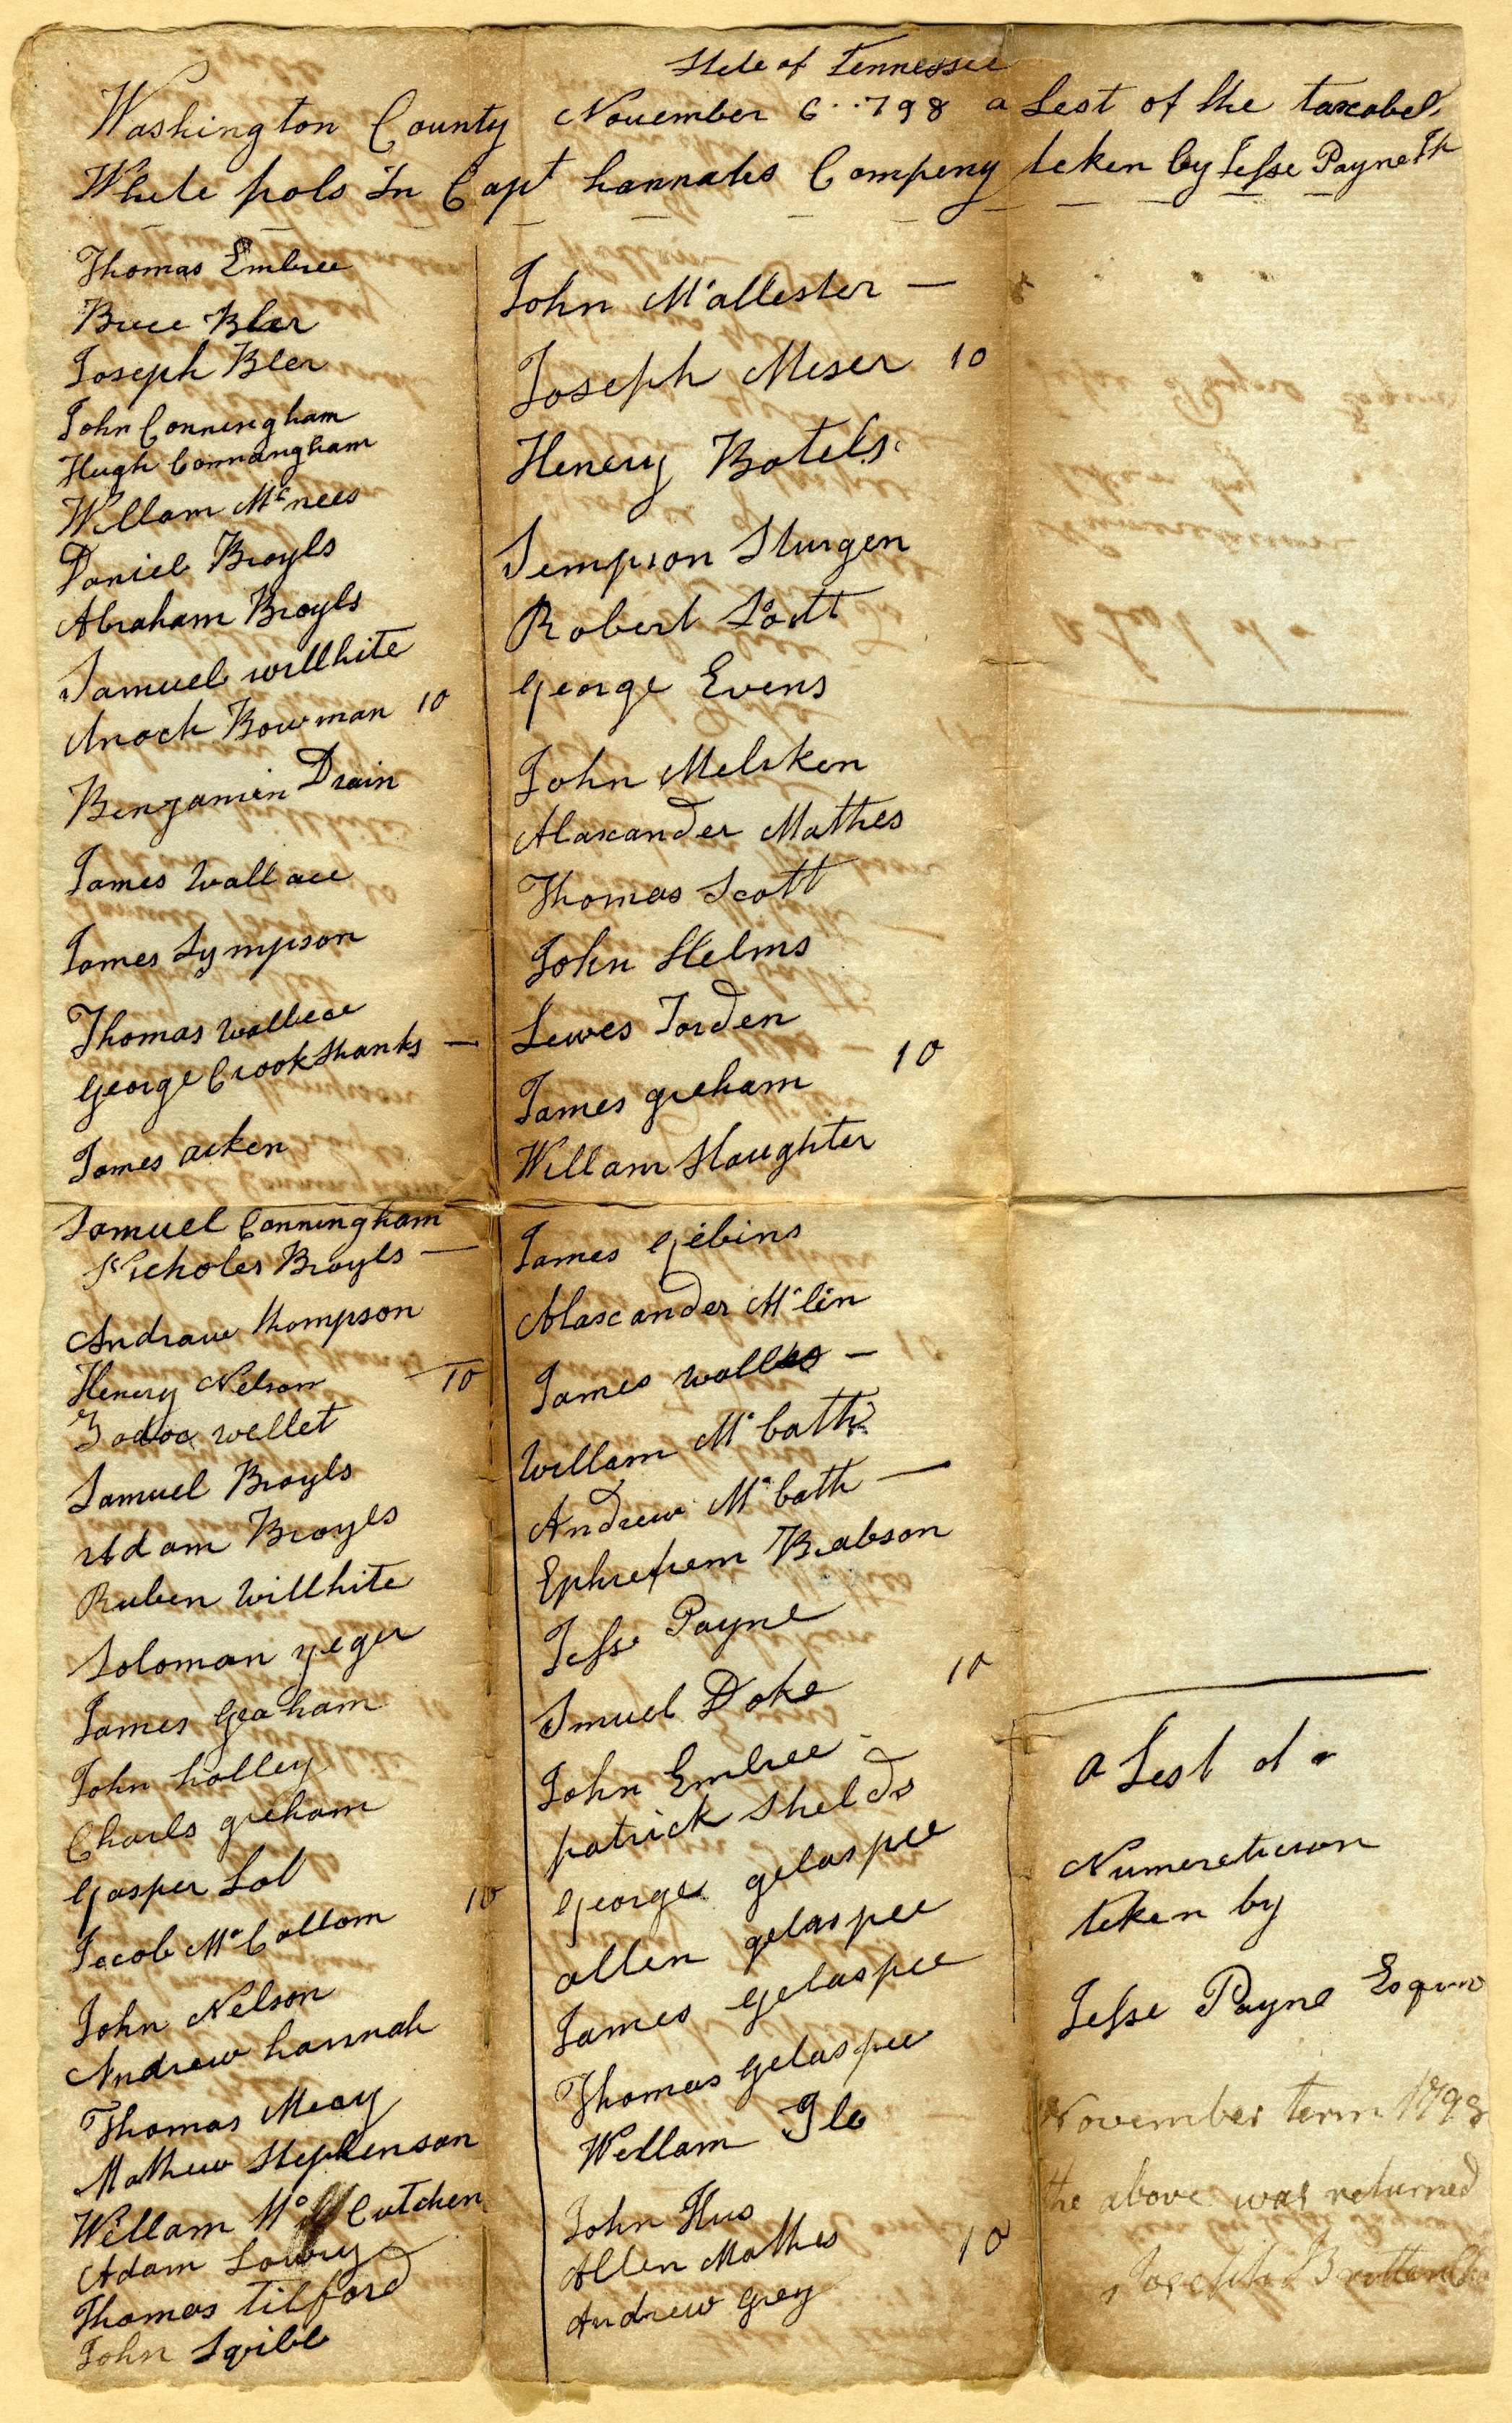 State of Tennessee
Washington County November 6..798 a Lest of the taxabel
White pols In Capt hannahs Compeny teken by Jesse Payne
Thomas Embree
Brice Bler
Joseph Bler
John Conningham
Hugh Connangham
Willam Mc nees
Daniel Broyls
Abraham Broyls
Samuel willhite
Anoch Bowman 10
Benjamin Drain
James Wallace
James Sympson
Thomas Wallace
George Crookshanks —
James aiken
Samuel Conningham
Nicholes Broyls —
Andrew thompson
Henery Nelson 10
Zadoc wellet
Samuel Broyls
Adam Broyls
Ruben Willhite
Solomon yeger
James Graham
John holley
Charls greham
Gasper Lol
Jacob Mc Collom 10
John Nelson
Andrew hannah
Thomas Meay
Mathew Stephenson
Willam Mc Cutchen
Adam Lowry
Thomas Tilford
John Sqibb
John Mc allester —
Joseph Meser 10
Henery Botels
Sempson Sturgen
Robert Scott
George Evens
John Meliken
Alaxander Mathes
Thomas Scott
John Helms
Lewes Jorden
James greham 10
Willam Slaughter
James Gebins
Alaxander Mc lin
James wallas —
Willam Mc bath
Andrew Mc bath —
Ephrefrem Babson
Jesse Payne
Smuel Doke 10
John Embree
patrick Shelds
George gelaspee
allen gelaspee
James Gelaspee
Thomas Gelaspee
Wellam
John Hus
Allen Mathes 10
Andrew Grey
a Lest of a
Numeretieson
teken by
Jesse Payne Esqur
November term 1798
the above was returned
Joseph Britten